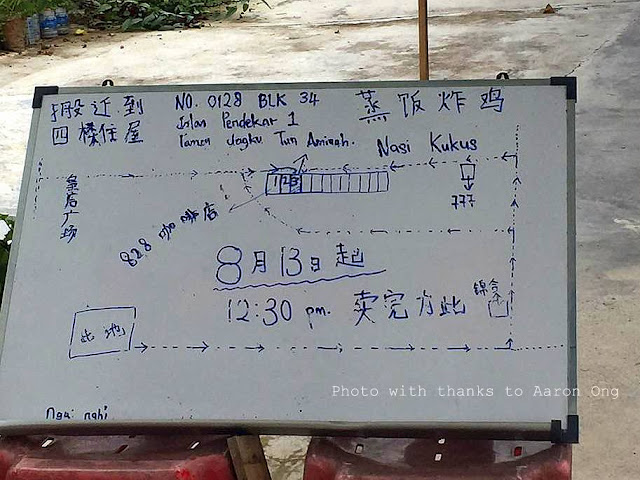 搬迁到
四楼住屋
NO. 0128 BLK 34
Jalan Pendekar 1
Taman Ungku Tun Aminah.
蒸饭炸鸡
Nasi Kukus
皇后广场
777
828 咖啡店
8月13日起
12:30 pm. 卖完为止
此地
Photo with thanks to Aaron Ong